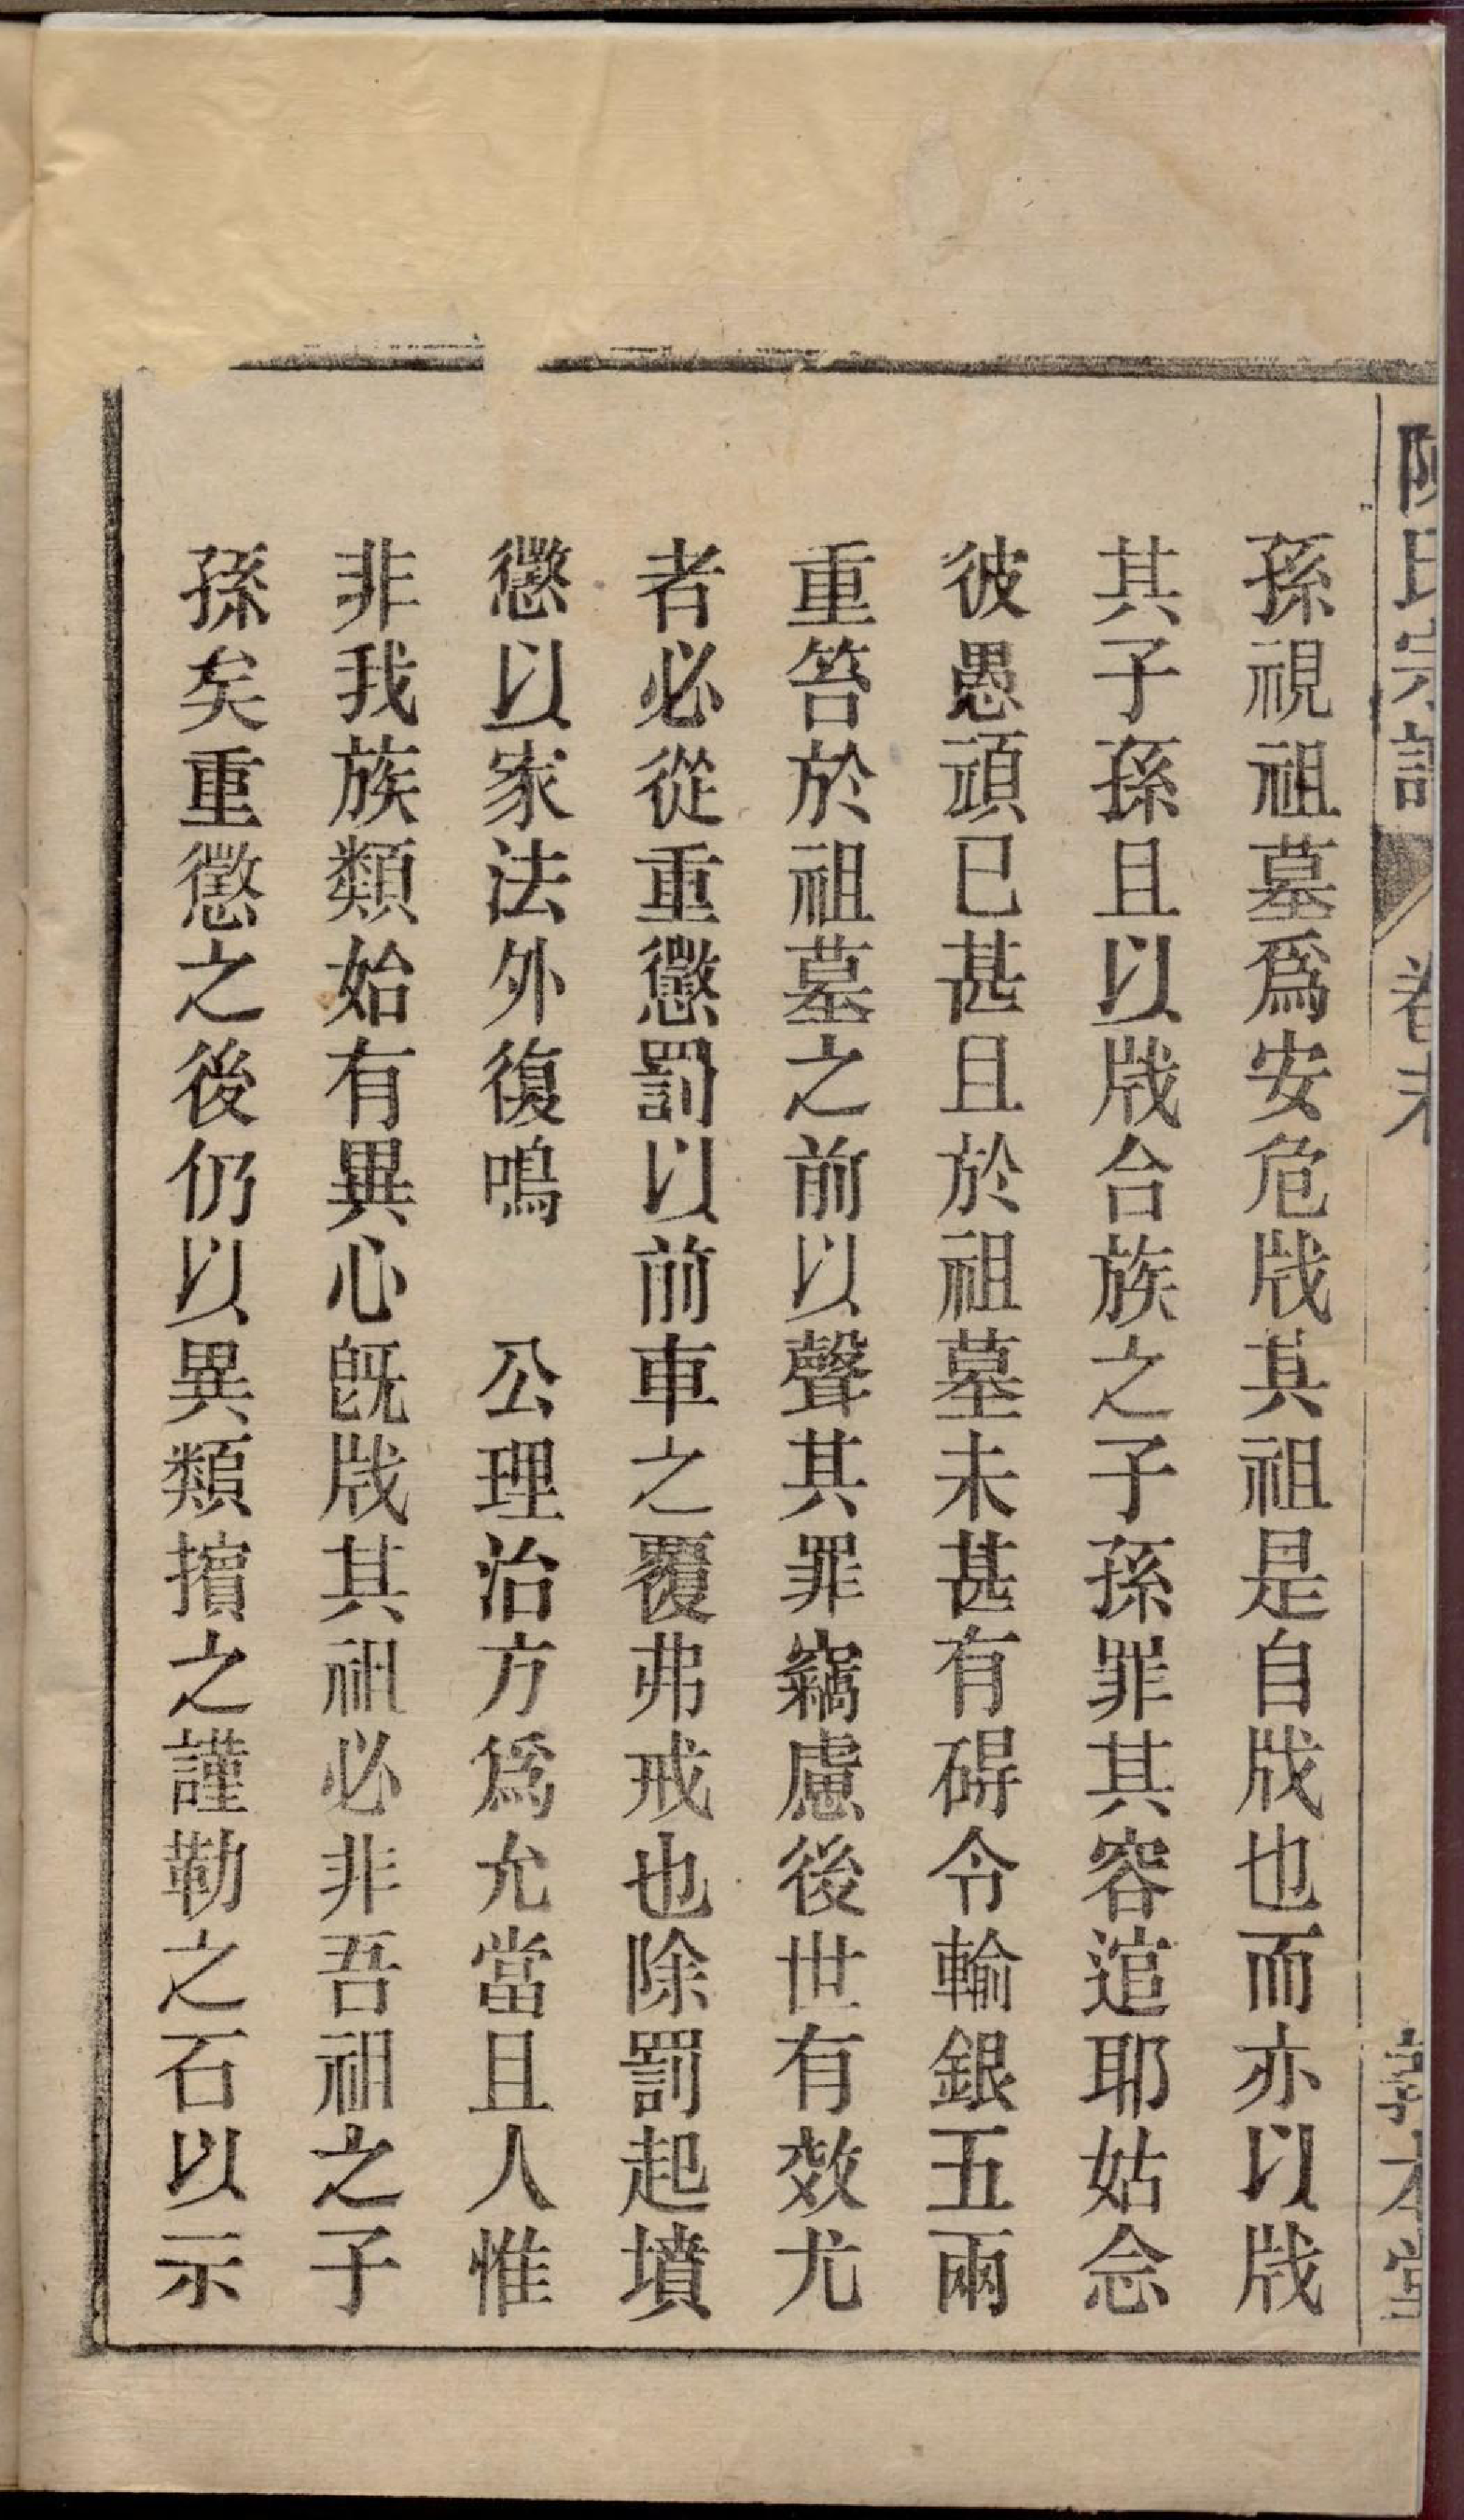 陳氏宗譜 卷末 敦本堂
孫視祖墓爲安危戕其祖是自戕也而亦以戕
其子孫且以戕合族之子孫罪其容逭耶姑念
彼愚頑已甚且於祖墓未甚有碍令輸銀五兩
重笞於祖墓之前以聲其罪竊慮後世有效尤
者必從重懲罰以前車之覆弗戒也除罰起墳
懲以家法外復鳴　公理治方爲允當且人惟
非我族類始有異心旣戕其祖必非吾祖之子
孫矣重懲之後仍以異類擯之謹勒之石以示